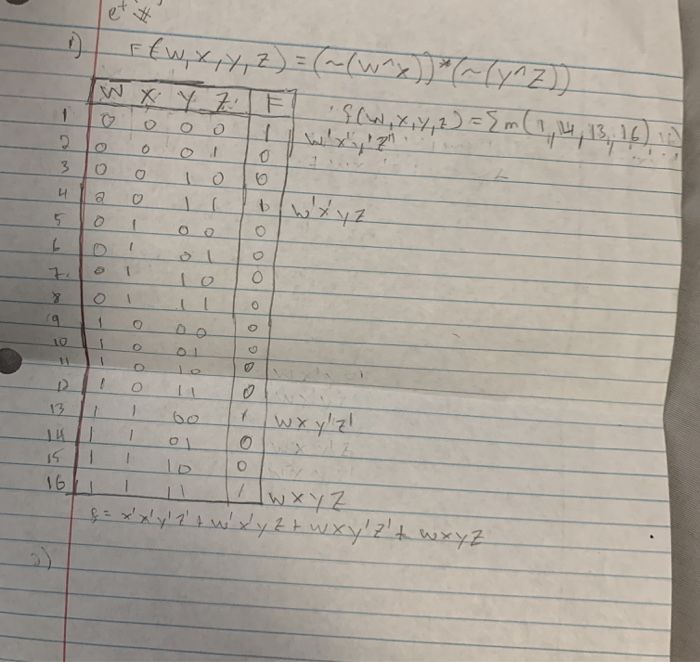 et #
1) F(W,X,Y,Z) = (~(W^X))*(~(Y^Z))
W X Y Z F
f(W,X,Y,Z) = Σm(1,14,13,16)
1 0 0 0 0 1 W'X'Y'Z'
2 0 0 0 1 0
3 0 0 1 0 0
4 0 0 1 1 1 W'X'YZ
5 0 1 0 0 0
6 0 1 0 1 0
7. 0 1 1 0 0
8 0 1 1 1 0
9 1 0 0 0 0
10 1 0 0 1 0
11 1 0 1 0 0
12 1 0 1 1 0
13 1 1 0 0 1 WXY'Z'
14 1 1 0 1 0
15 1 1 1 0 0
16 1 1 1 1 1 WXYZ
f = X'X'Y'Z' + W'X'YZ + WXY'Z' + WXYZ
2)